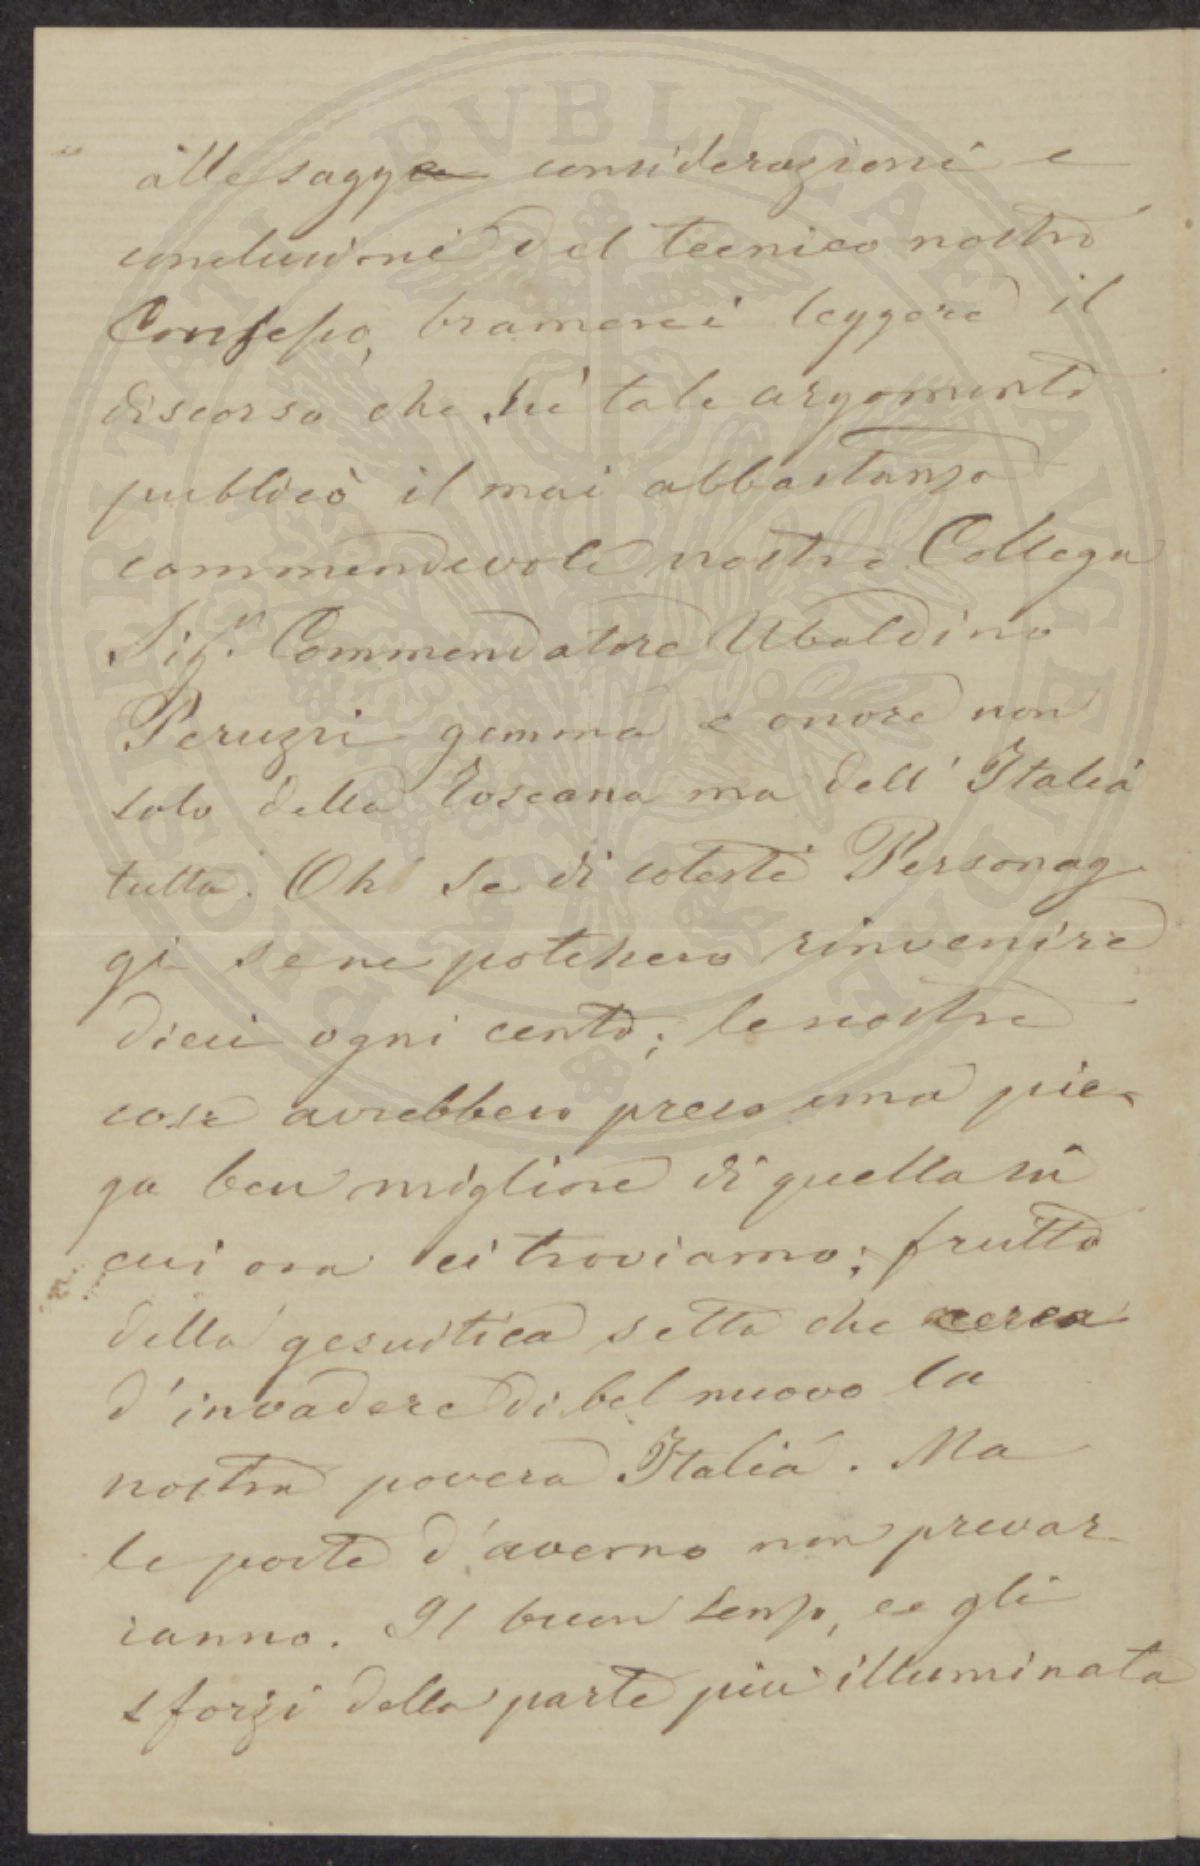 alle sagge considerazioni e
conclusioni del tecnico nostro
Consesso, bramerei leggere il
discorso che sù tale argomento
publicò il mai abbastanza
commendevole nostro Collega
Sigr. Commendatore Ubaldino
Peruzzi gemma e onore non
solo della Toscana ma dell' Italia
tutta. Oh se di cotesti Personag
gi se ne potessero rinvenire
dieci ogni cento; le nostre
cose avrebbero preso una pie-
ga ben migliore di quella in
cui ora ci troviamo; frutto
della gesuitica setta che cerca
d'invadere di bel nuovo la
nostra povera Italia. Ma
le porte d'averno non prevar
ranno. Il buon senso, e gli
sforzi della parte più illuminata
PROSPERITATI PVBLICAE AVGENDAE